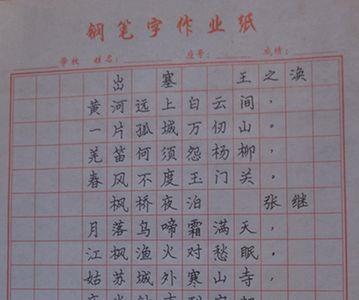 钢笔字作业纸
学校 姓名: 座号: 成绩:
出 塞 王之涣
黄河远上白云间,
一片孤城万仞山。
羌笛何须怨杨柳,
春风不度玉门关。
枫桥夜泊 张继
月落乌啼霜满天,
江枫渔火对愁眠,
姑苏城外寒山寺,